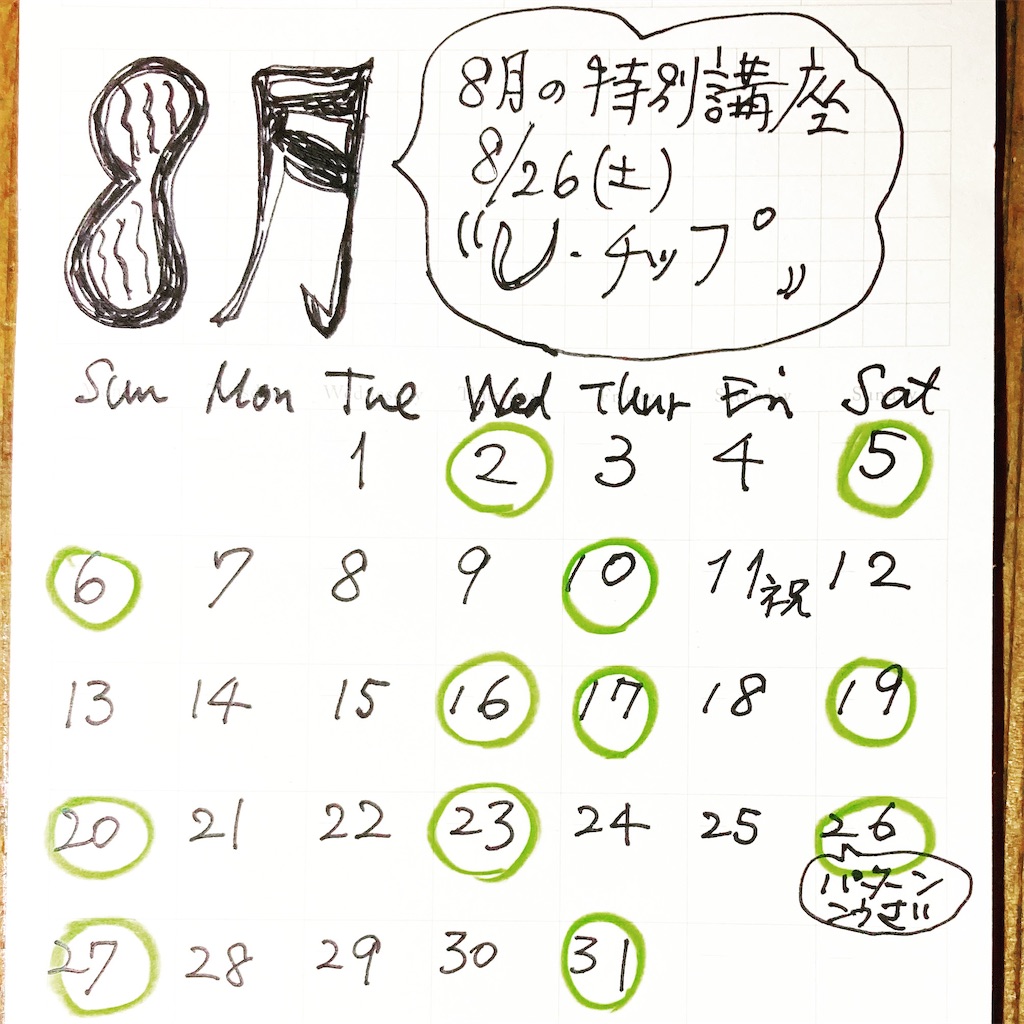 8月
8月の特別講座
8/26(土)
“U・チップ”
Sun Mon Tue Wed Thur Fri Sat
1 2 3 4 5
6 7 8 9 10 11祝 12
13 14 15 16 17 18 19
20 21 22 23 24 25 26
パターン
こうざ!!
27 28 29 30 31